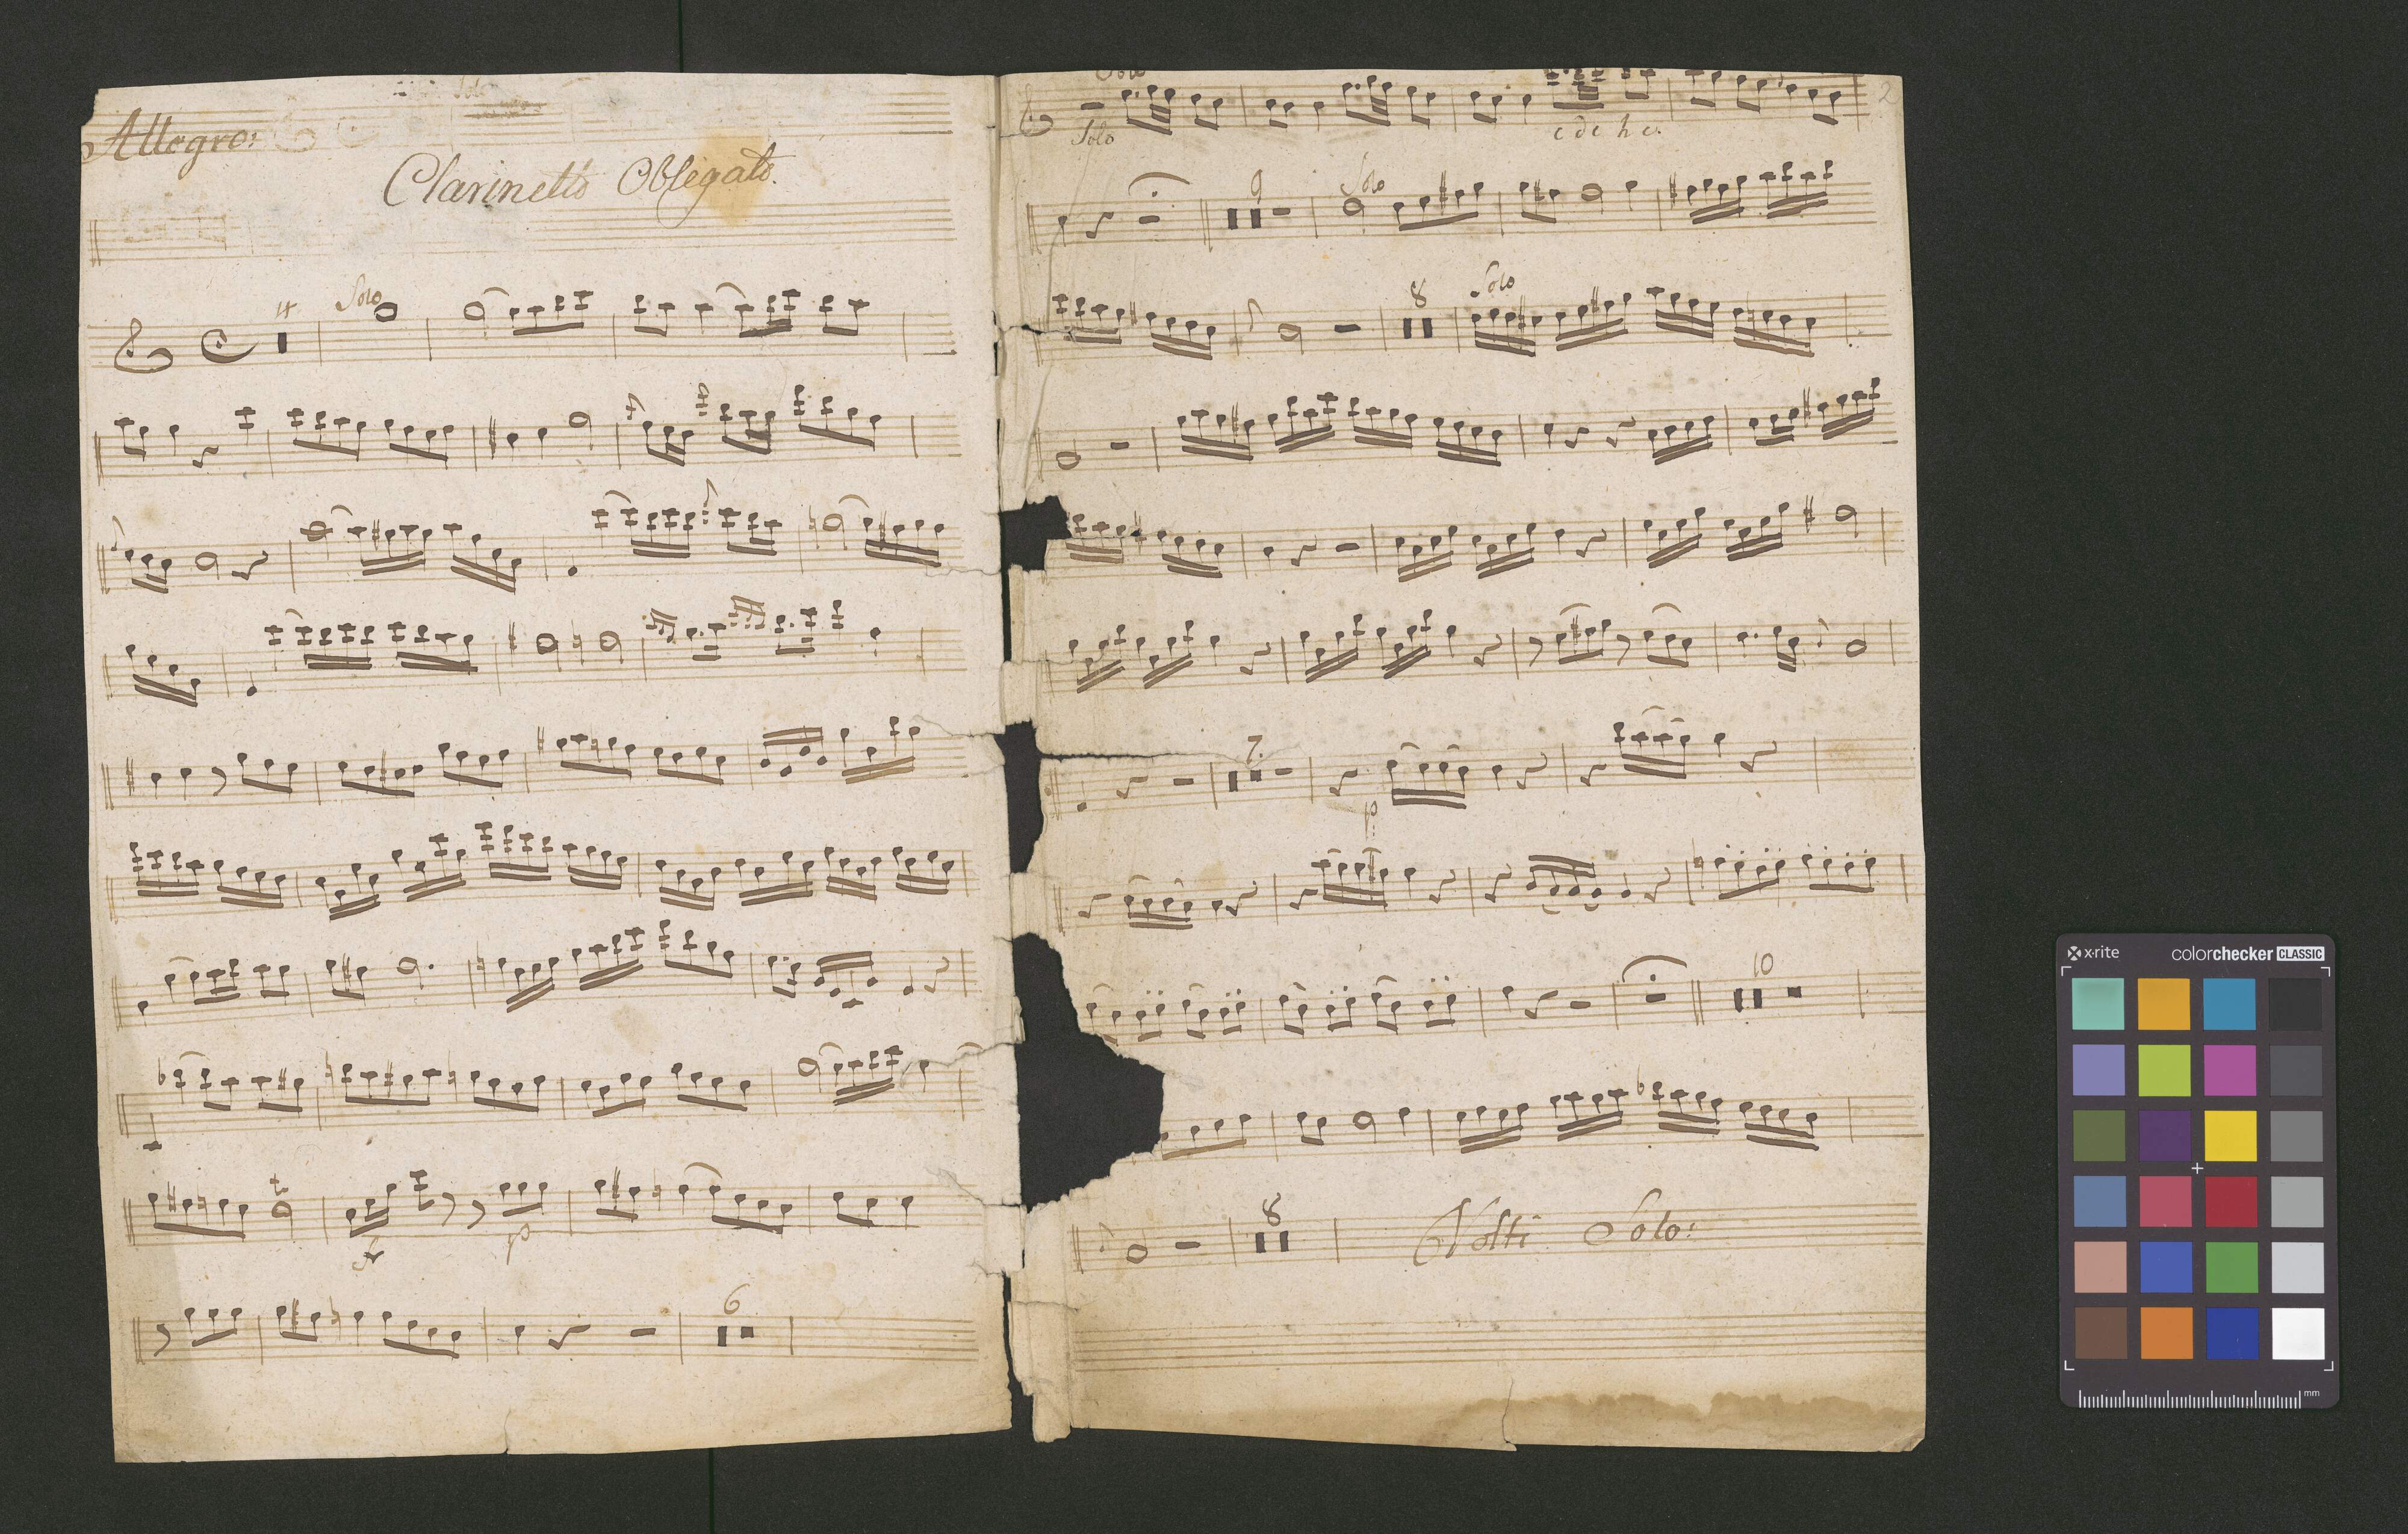 Solo
Allegro:
Clarinetto Obligato.
4
Solo
p
6
Solo
2
Solo
c d c h c.
9
Solo
8
Solo
7.
p:
10
8
Volti Solo:
x-rite
colorchecker CLASSIC
mm